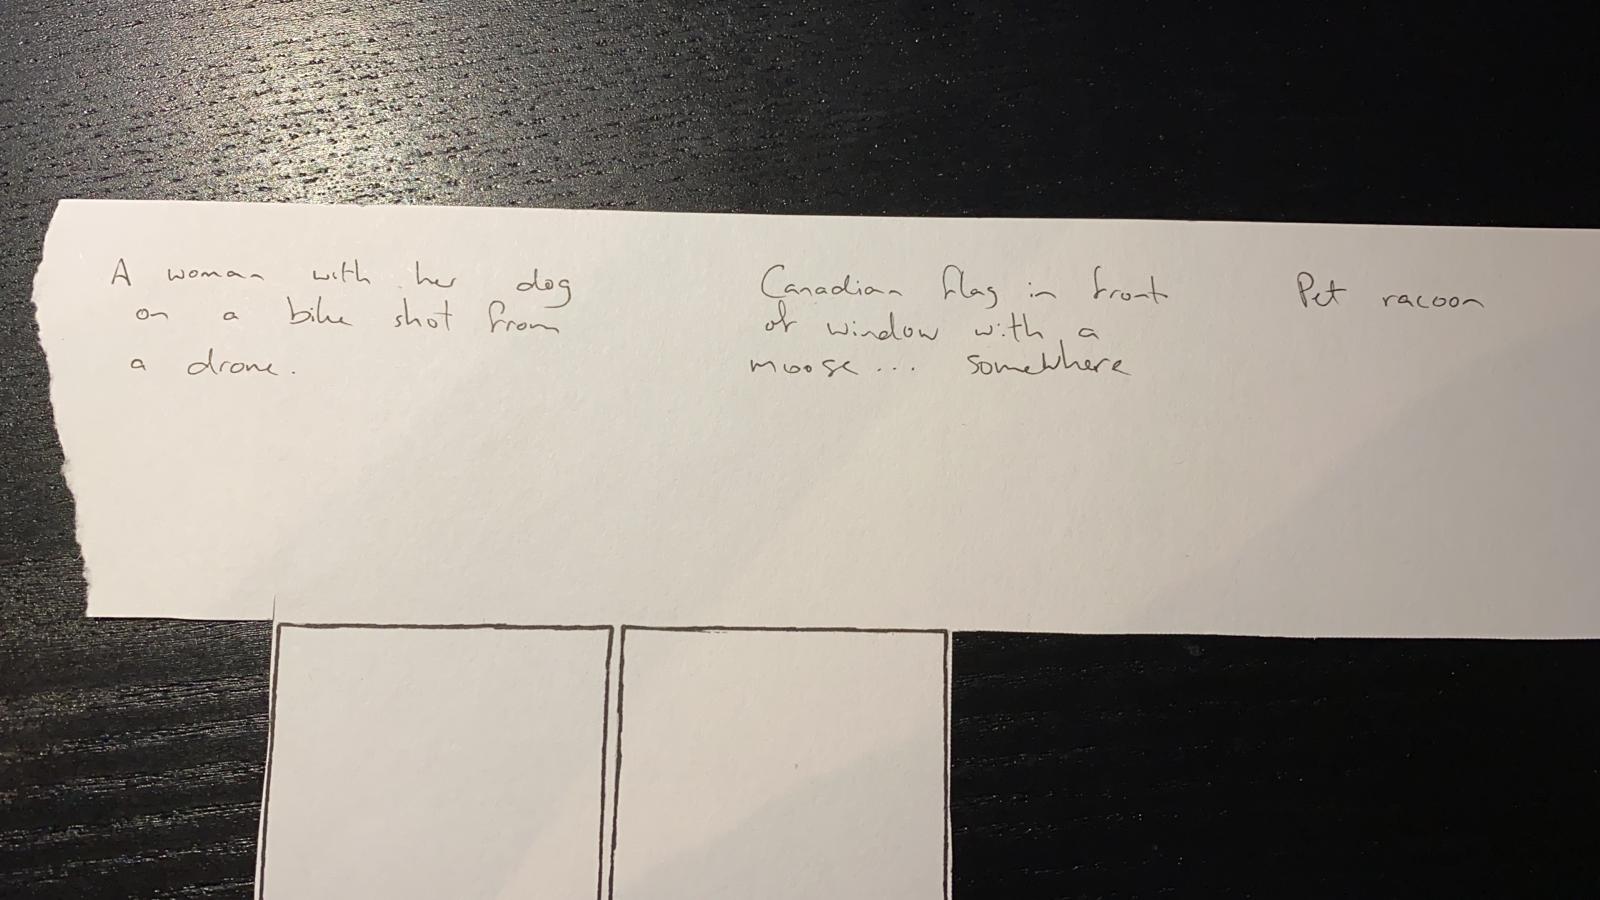 A woman with her dog
on a bike shot from
a drone.
Canadian flag in front
of window with a
moose... somewhere
Pet racoon